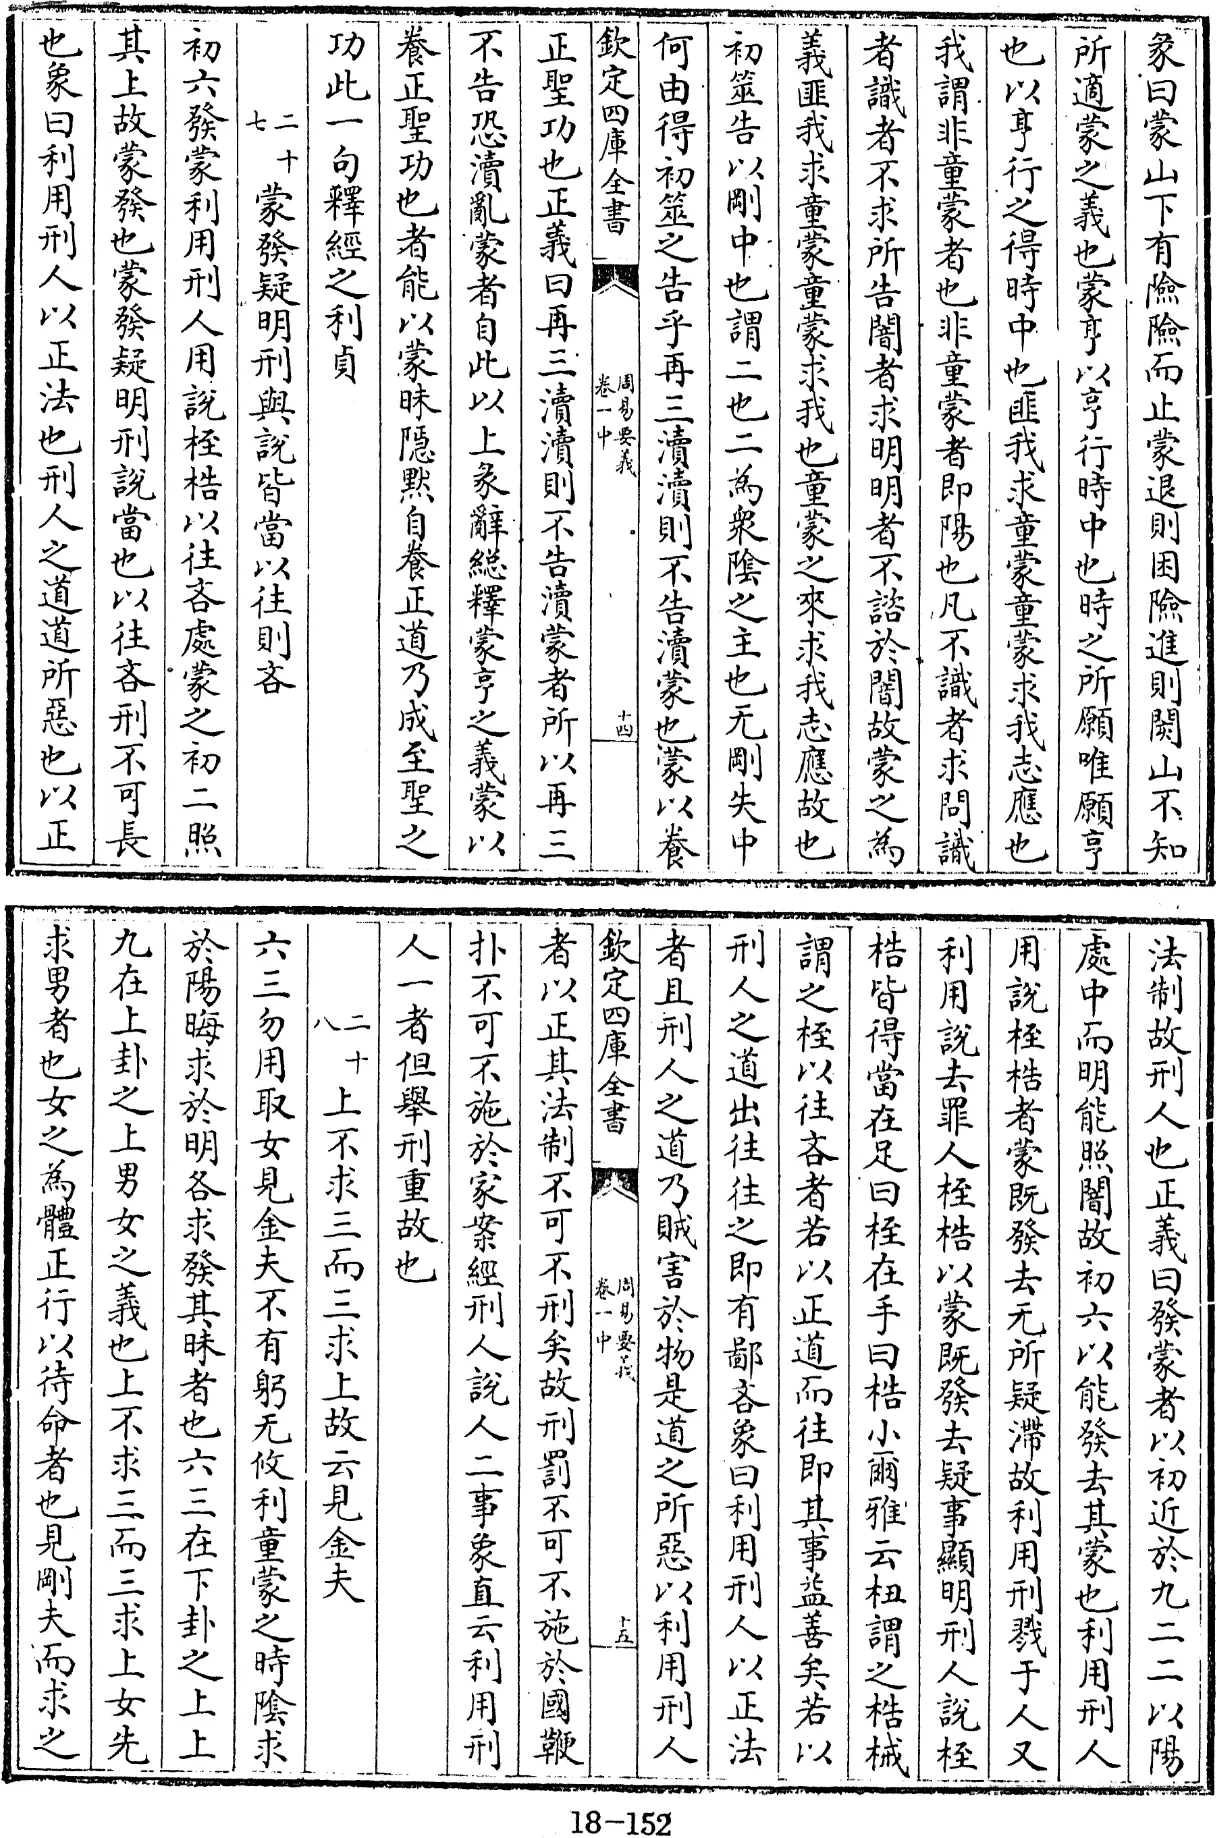 彖曰蒙山下有險險而止蒙退則困險進則閡山不知
所適蒙之義也蒙亨以亨行時中也時之所願唯願亨
也以亨行之得時中也匪我求童蒙童蒙求我志應也
我謂非童蒙者也非童蒙者即陽也凡不識者求問識
者識者不求所告闇者求明明者不諮於闇故蒙之為
義匪我求童蒙童蒙求我也童蒙之來求我志應故也
初筮告以剛中也謂二也二為衆陰之主也无剛失中
何由得初筮之告乎再三瀆瀆則不告瀆蒙也蒙以養
欽定四庫全書
周易要義
卷一中
十四
正聖功也正義曰再三瀆瀆則不告瀆蒙者所以再三
不告恐瀆亂蒙者自此以上彖辭總釋蒙亨之義蒙以
養正聖功也者能以蒙昧隱默自養正道乃成至聖之
功此一句釋經之利貞
二十七
蒙發疑明刑與說皆當以往則吝
初六發蒙利用刑人用說桎梏以往吝處蒙之初二照
其上故蒙發也蒙發疑明刑說當也以往吝刑不可長
也象曰利用刑人以正法也刑人之道道所惡也以正
法制故刑人也正義曰發蒙者以初近於九二二以陽
處中而明能照闇故初六以能發去其蒙也利用刑人
用說桎梏者蒙既發去无所疑滯故利用刑戮于人又
利用說去罪人桎梏以蒙既發去疑事顯明刑人說桎
梏皆得當在足曰桎在手曰梏小爾雅云杻謂之梏械
謂之桎以往吝者若以正道而往即其事益善矣若以
刑人之道出往往之即有鄙吝象曰利用刑人以正法
者且刑人之道乃賊害於物是道之所惡以利用刑人
欽定四庫全書
周易要義
卷一中
十五
者以正其法制不可不刑矣故刑罰不可不施於國鞭
扑不可不施於家案經刑人說人二事象直云利用刑
人一者但舉刑重故也
二十八
上不求三而三求上故云見金夫
六三勿用取女見金夫不有躬无攸利童蒙之時陰求
於陽晦求於明各求發其昧者也六三在下卦之上上
九在上卦之上男女之義也上不求三而三求上女先
求男者也女之為體正行以待命者也見剛夫而求之
18-152